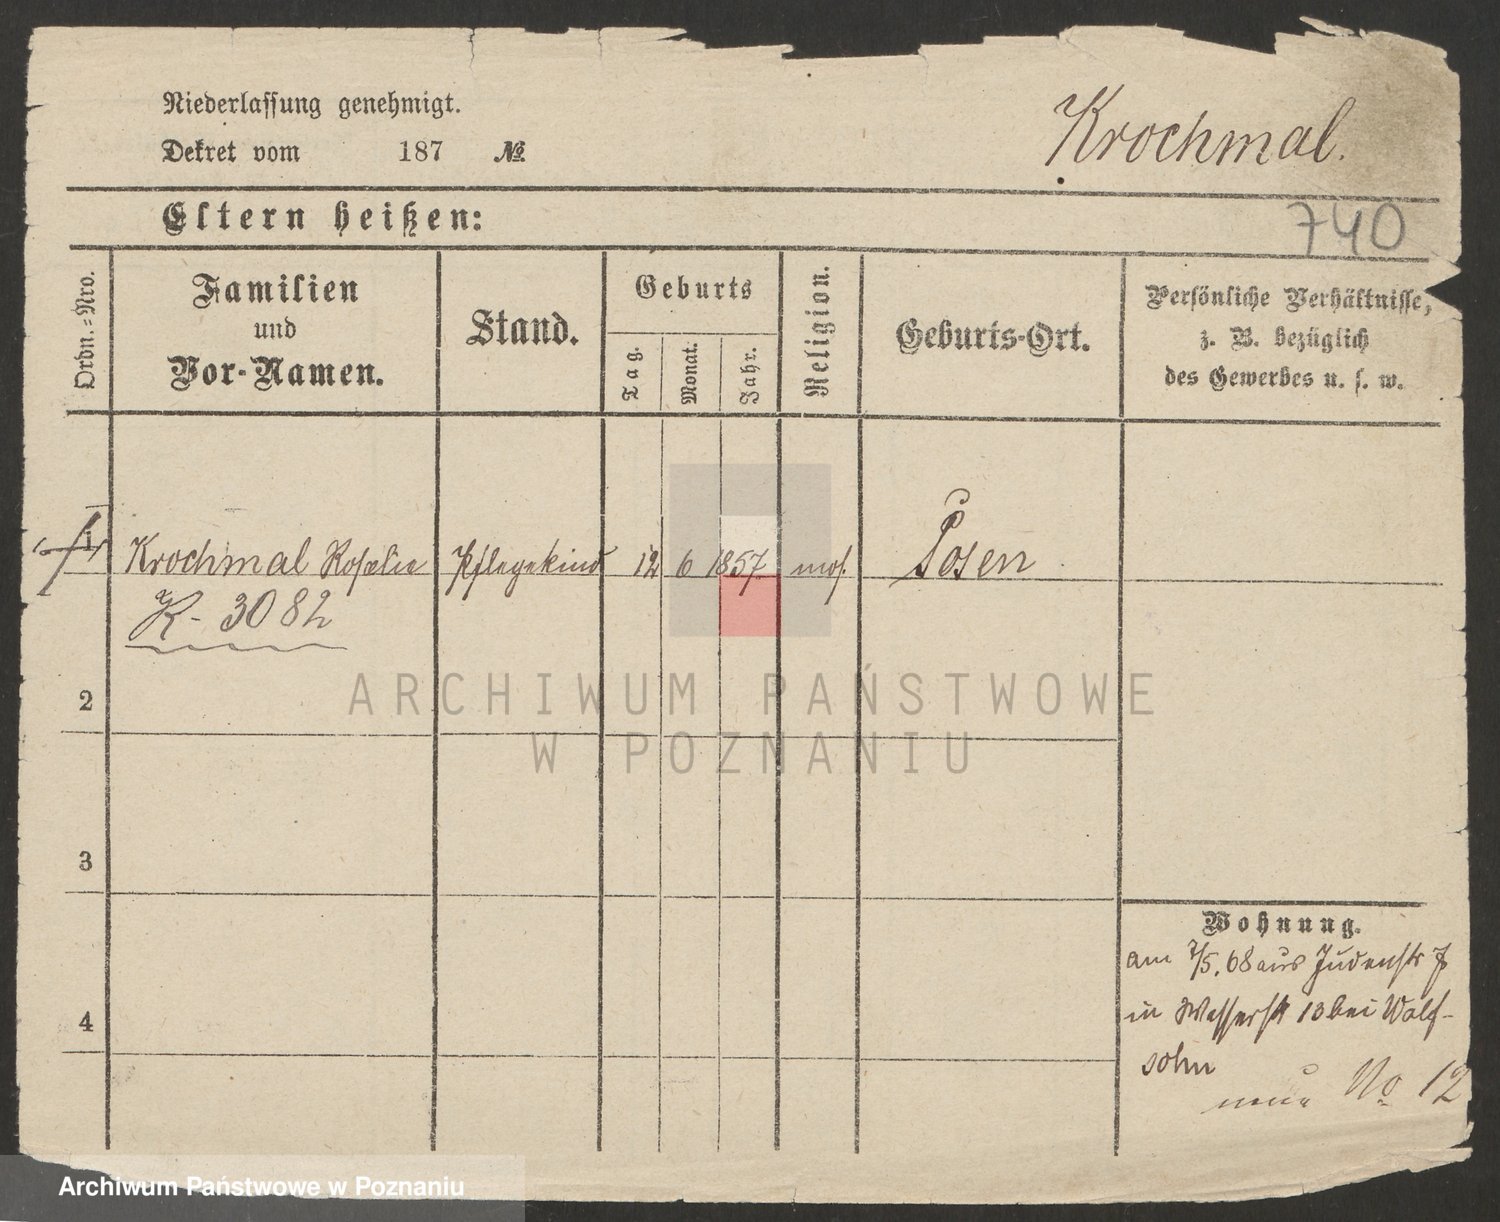 Niederlassung genehmigt.
Dekret vom 187 №
Krochmal.
Eltern heißen:
740
Ordn.=Nro.
Familien
und
Vor-Namen.
Stand.
Geburts
Tag.
Monat.
Jahr.
Religion.
Geburts-Ort.
Persönliche Verhältnisse,
z. B. bezüglich
des Gewerbes u. s. w.
1 Krochmal Rosalie Pflegekind 12 6 1857. mos. Posen
K- 3082
2
3
4
Wohnung.
am 7/5. 68 aus Judenstr 7
in Wasserstr 13 bei Wolf-
sohn
neue No 12
ARCHIWUM PAŃSTWOWE
W POZNANIU
Archiwum Państwowe w Poznaniu